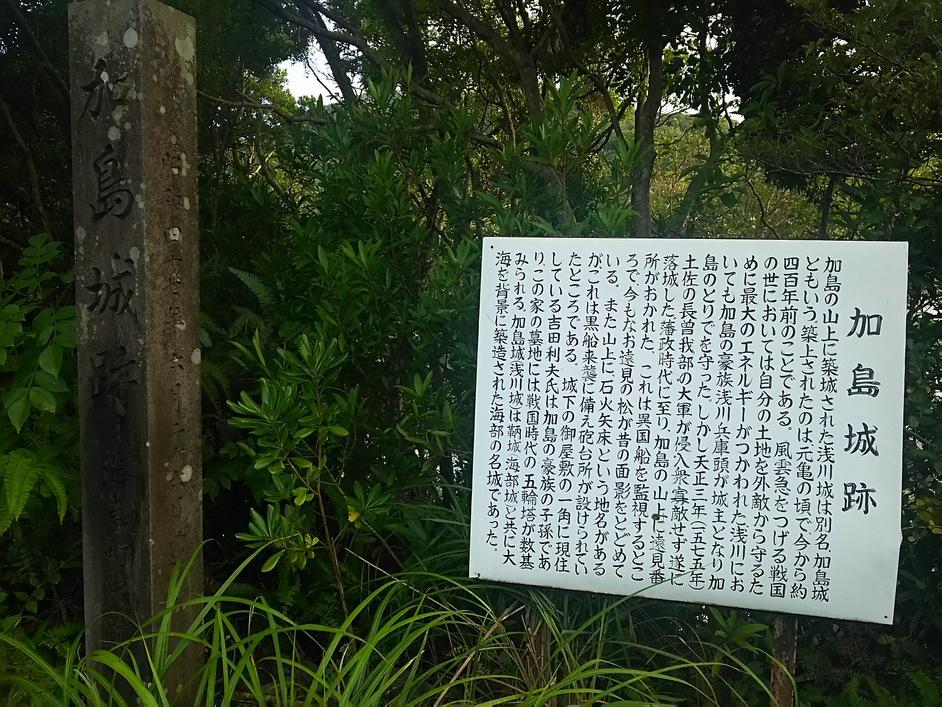 加島城跡
加島城跡
加島の山上に築城された浅川城は別名、加島城
ともいう。築上されたのは元亀の頃で今から約
四百年前のことである。風雲急をつげる戦国
の世においては自分の土地を外敵から守るた
めに最大のエネルギーがつかわれた。浅川にお
いても加島の豪族浅川兵庫頭が城主となり加
島のとりでを守った。しかし天正三年(一五七五年)
土佐の長曽我部の大軍が侵入衆寡敵せず遂に
落城した。藩政時代に至り、加島の山上に遠見番
所がおかれた。これは異国船を監視するどこ
ろで今もなお遠見の松が昔の面影をとどめて
いる。また山上に石火矢床という地名がある
がこれは黒船来襲に備え砲台所が設けられてい
たところである。城下の御屋敷の一角に現住
している吉田利夫氏は加島の豪族の子孫であ
りこの家の墓地には戦国時代の五輪塔が数基
みられる。加島城浅川城は鞆城(海部城)と共に大
海を背景に築造された海部の名城であった。